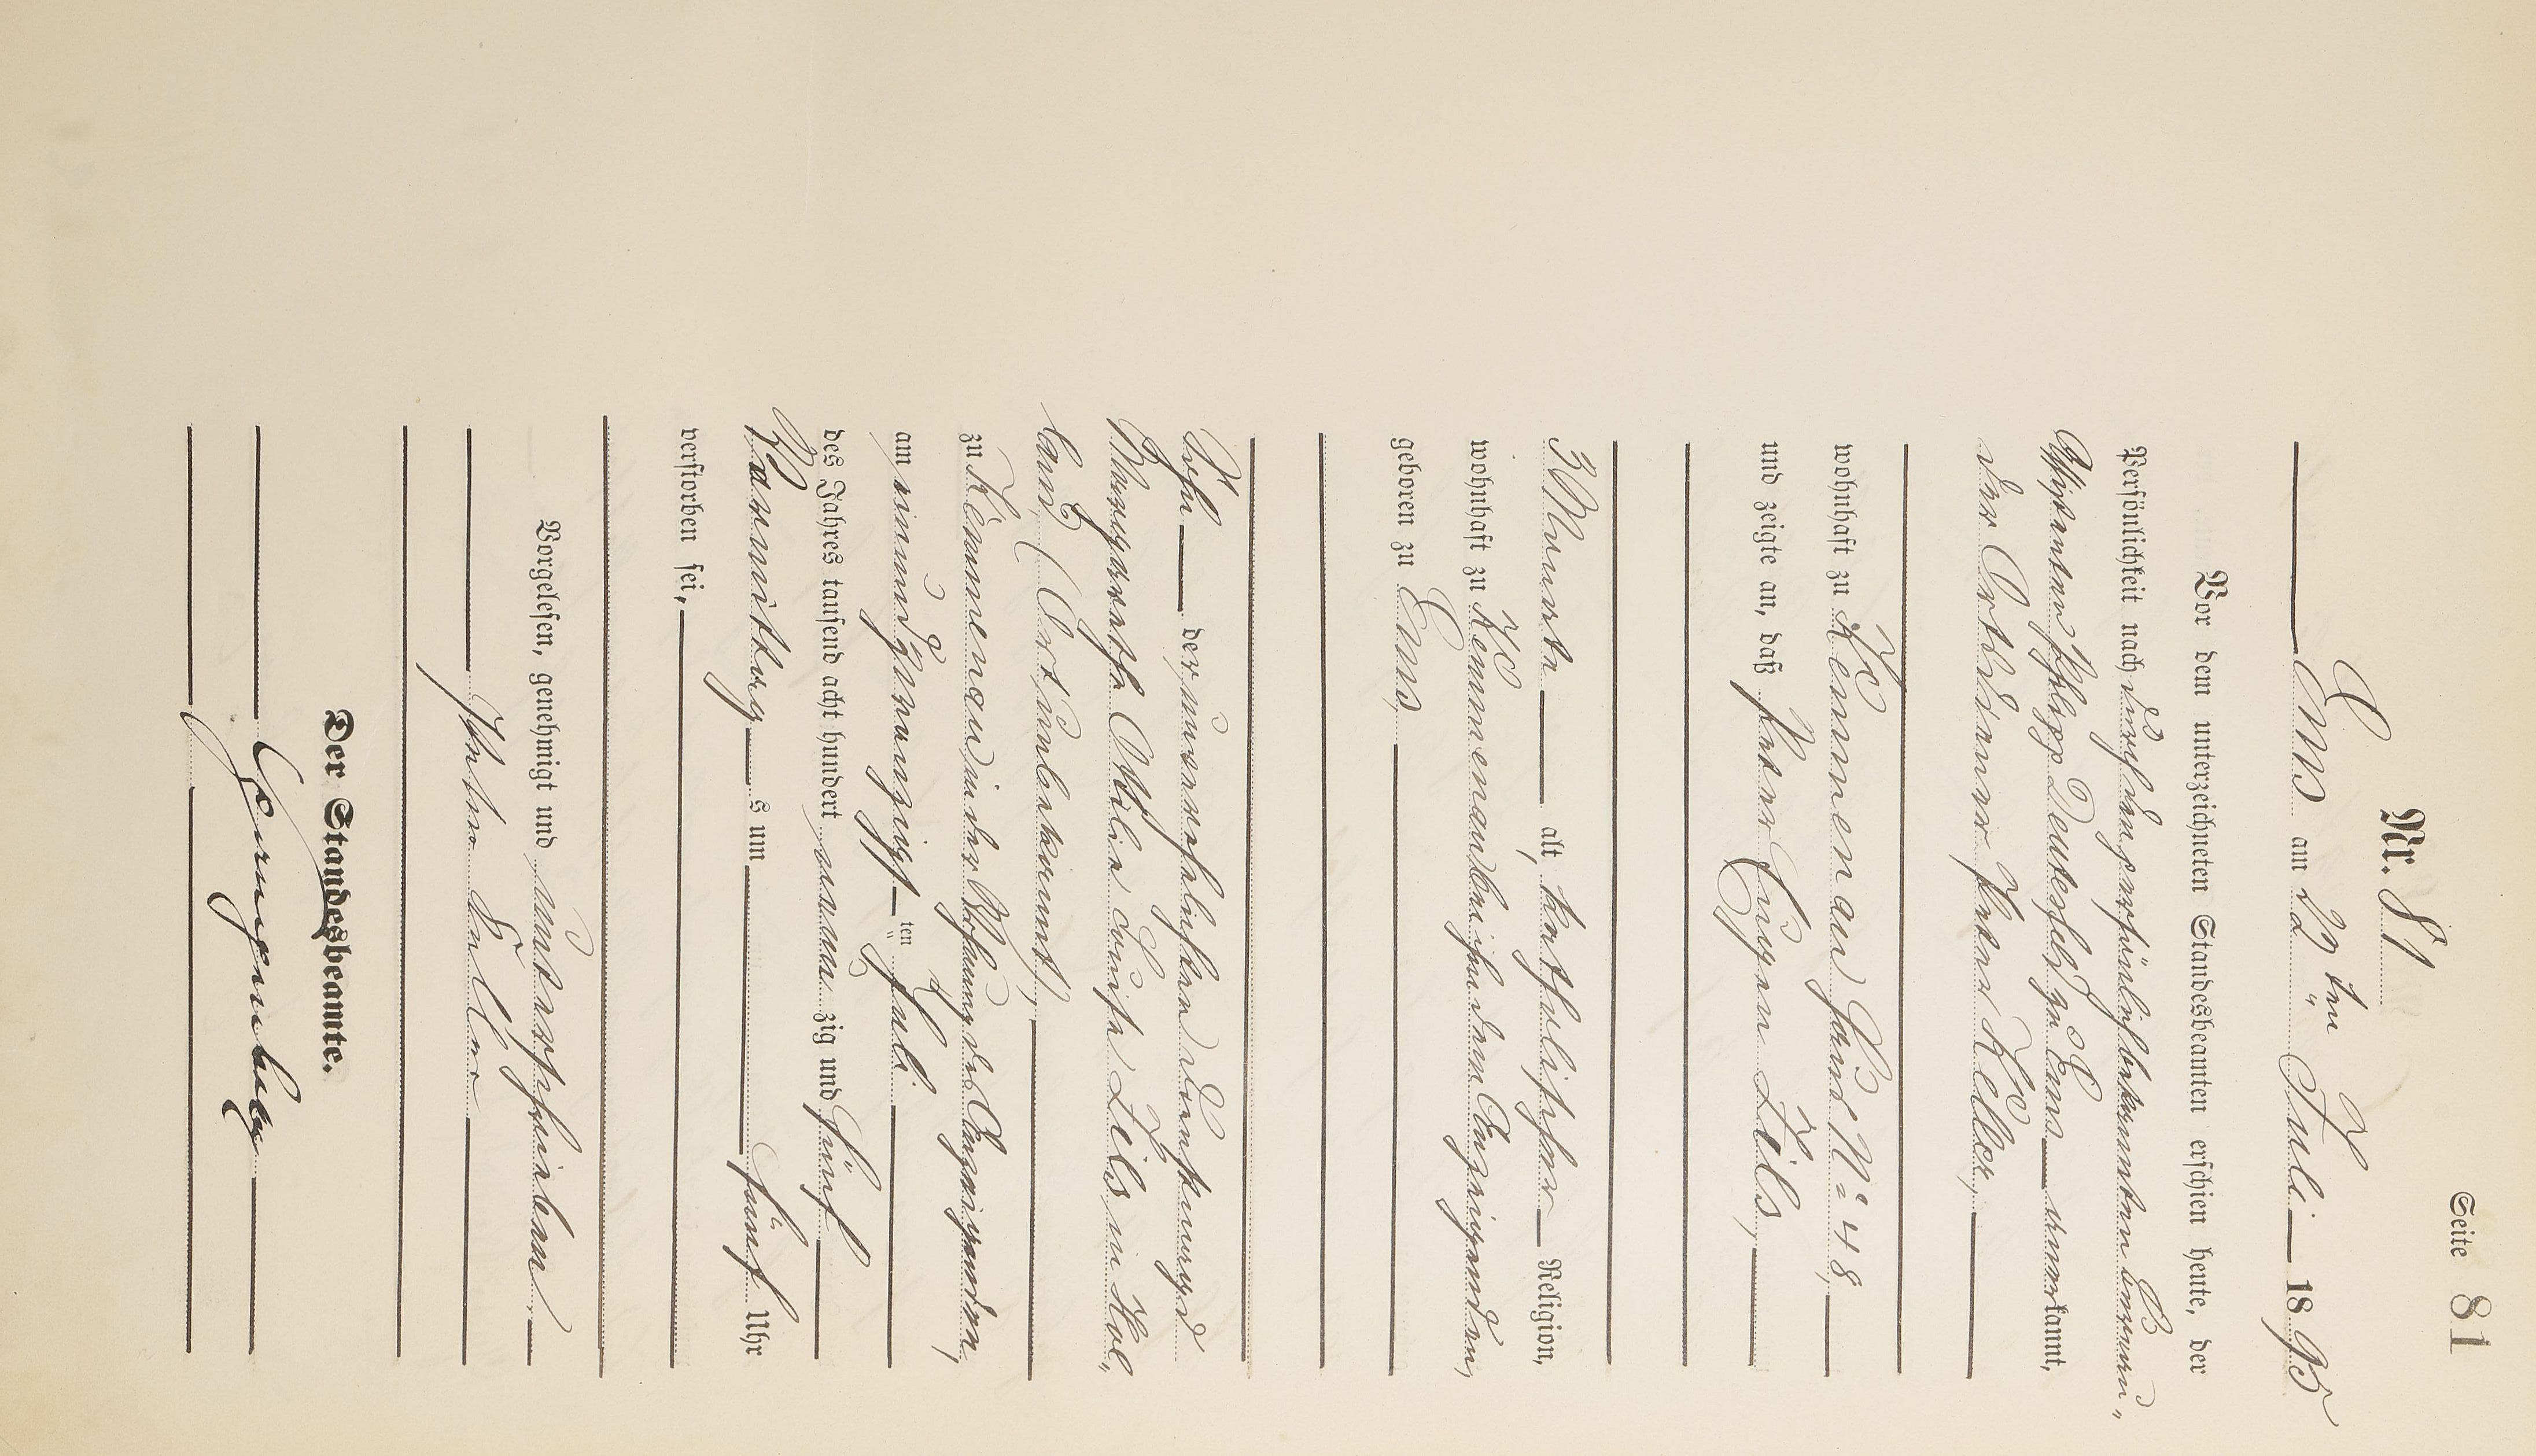 Seite 81
Nr. 81
Ems am 22ten Juli 1895
Vor dem unterzeichneten Standesbeamten erschien heute, der
Persönlichkeit nach durch den persönlich bekannten Bureau-
Assistenten Philipp Deutesfeld zu Ems anerkannt,
der Ortsdiener Peter Keller,
wohnhaft zu Kemmenau Haus No 48,
und zeigte an, daß Peter Eugen Zils,
3 Monate alt, katholischer Religion,
wohnhaft zu Kemmenau bei ihm dem Anzeigenden,
geboren zu Ems,
Sohn der unverehelichten Dienstmagd
Margaretha Ottilie Luise Zils, in Hol-
land (Ort unbekannt),
zu Kemmenau in der Wohnung des Anzeigenden,
am einundzwanzigsten Juli
des Jahres tausend acht hundert neunzig und fünf
Vormittags um fünf Uhr
verstorben sei,
Vorgelesen, genehmigt und unterschrieben
Peter Keller
Der Standesbeamte.